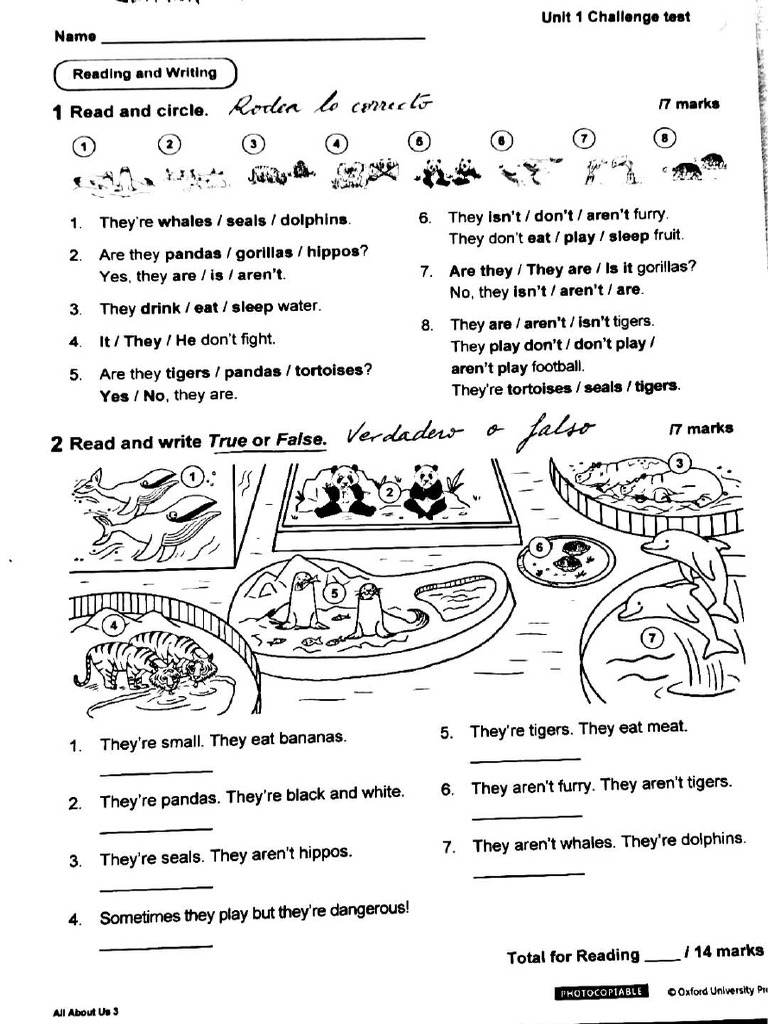 Unit 1 Challenge test
Name
Reading and Writing
1 Read and circle. Rodea lo correcto /7 marks
1 2 3 4 5 6 7 8
1. They're whales / seals / dolphins.
2. Are they pandas / gorillas / hippos?
Yes, they are / is / aren't.
3. They drink / eat / sleep water.
4. It / They / He don't fight.
5. Are they tigers / pandas / tortoises?
Yes / No, they are.
6. They isn't / don't / aren't furry.
They don't eat / play / sleep fruit.
7. Are they / They are / Is it gorillas?
No, they isn't / aren't / are.
8. They are / aren't / isn't tigers.
They play don't / don't play /
aren't play football.
They're tortoises / seals / tigers.
2 Read and write True or False. Verdadero o falso /7 marks
1
2
3
4
5
6
7
1. They're small. They eat bananas.
2. They're pandas. They're black and white.
3. They're seals. They aren't hippos.
4. Sometimes they play but they're dangerous!
5. They're tigers. They eat meat.
6. They aren't furry. They aren't tigers.
7. They aren't whales. They're dolphins.
Total for Reading ____ / 14 marks
PHOTOCOPIABLE © Oxford University
All About Us 3